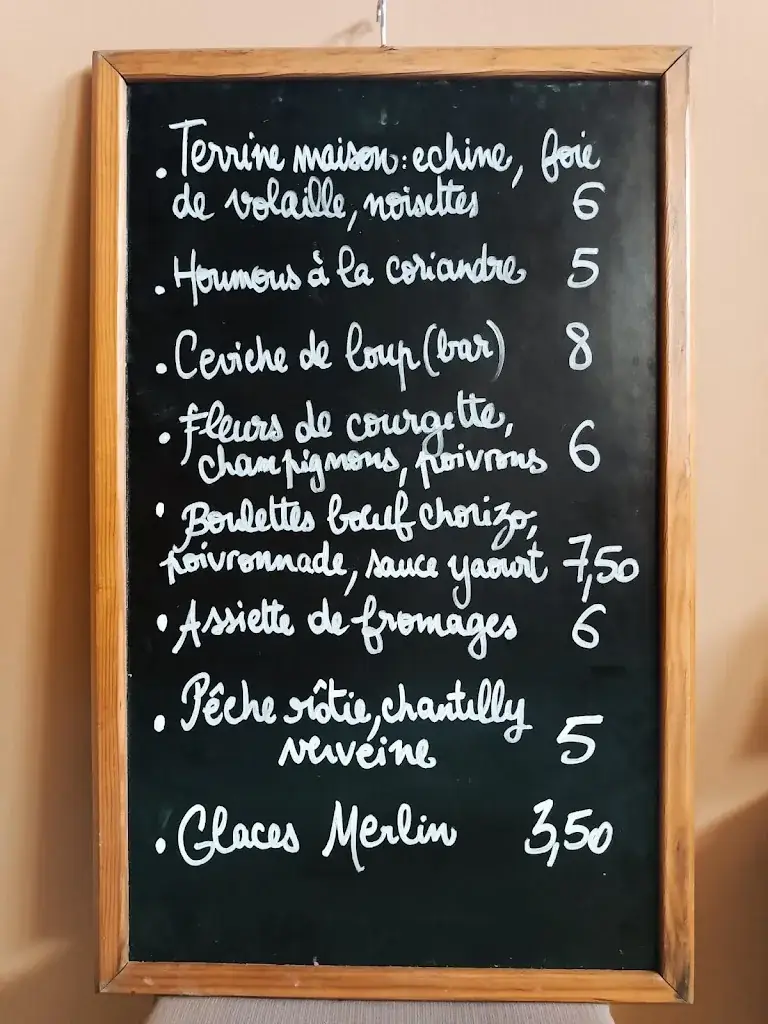 . Terrine maison : echine, foie
de volaille, noisettes 6
. Houmous à la coriandre 5
. Ceviche de loup (bar) 8
. Fleurs de courgette,
champignons, poivrons 6
. Boulettes bœuf chorizo,
poivronnade, sauce yaourt 7,50
. Assiette de fromages 6
. Pêche rôtie, chantilly
verveine 5
. Glaces Merlin 3,50